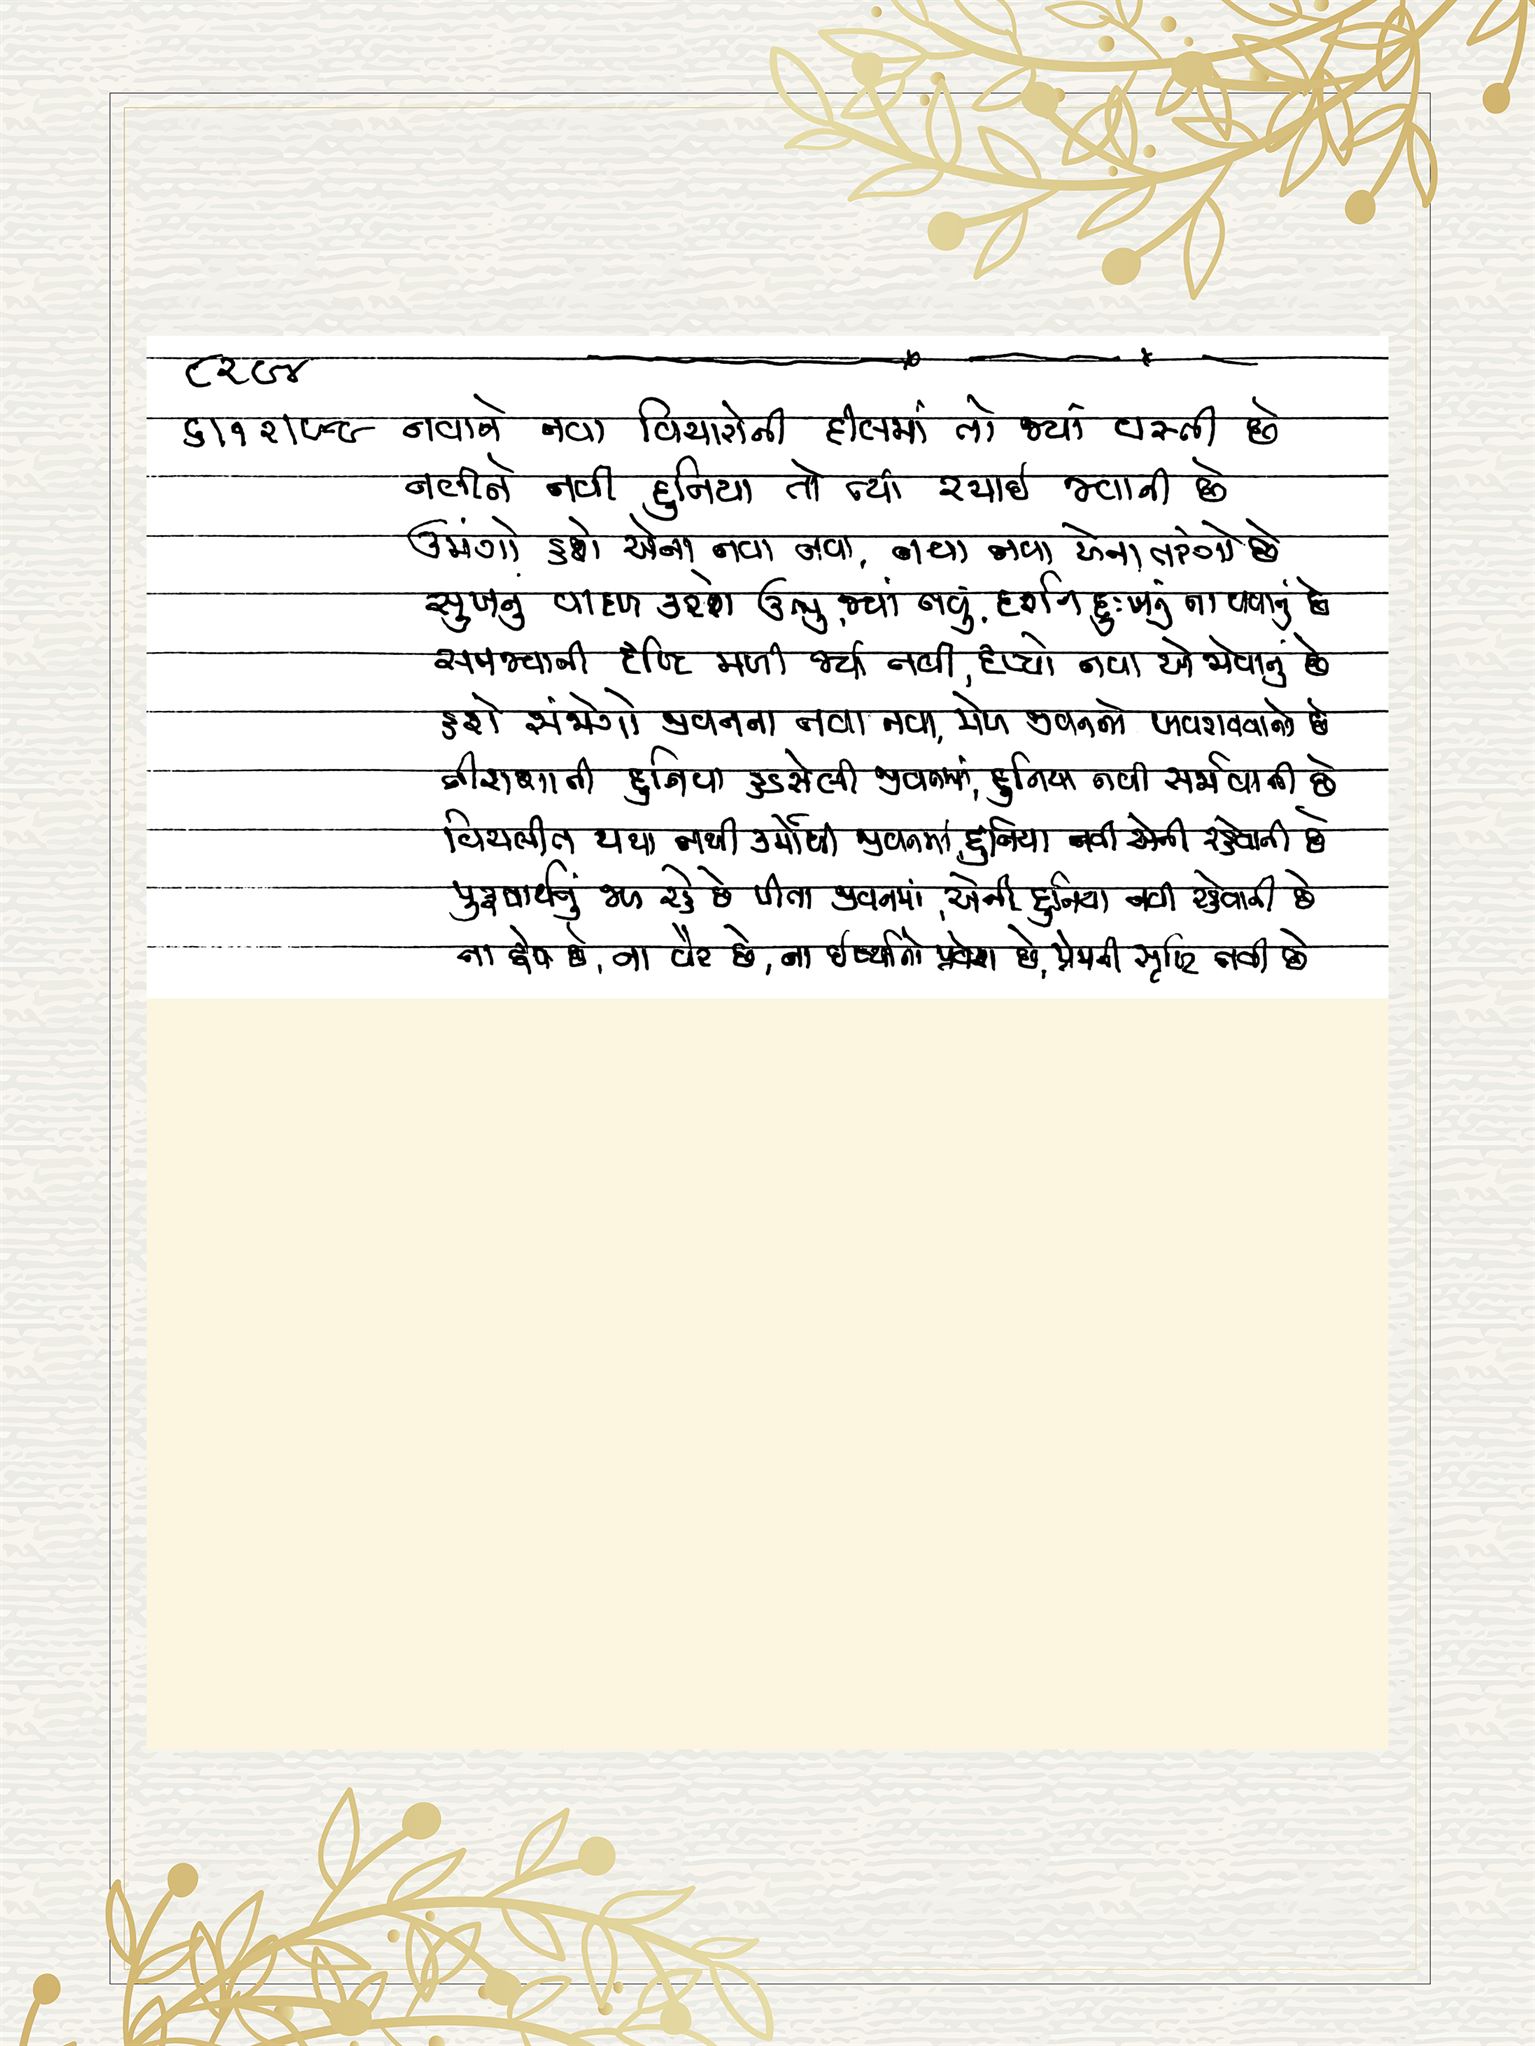 ૮૨૭૪
નવાને નવા વિચારોની દીલમાં તો જ્યાં વસ્તી છે
નવીને નવી દુનિયા તો ત્યાં રચાઈ જવાની છે
ઉમંગો હશે એના નવા નવા, નવા નવા એના તરંગો છે
સુખનું વાદળ કરશે ઉભુ જ્યાં નવું, દર્શન દુઃખનું ના થવાનું છે
સમજવાની દૃષ્ટિ મળી જ્યાં નવી, દૃશ્યો નવા એ જોવાનું છે
હશે સંજોગો જીવનના નવા નવા, મેળ જીવનનો
નીરાશાની દુનિયા હડસેલી જીવનમાં, દુનિયા નવી સર્જવાની છે
વિચલીત થયા નથી કર્મોથી જીવનમાં, દુનિયા નવી એની રહેવાની છે
પુરુષાર્થનું જળ રહે છે પીતા જીવનમાં, એની દુનિયા નવી રહેવાની છે
ના દ્વેષ છે, ના વૈર છે, ના ઈર્ષ્યાનો પ્રવેશ છે, પ્રેમની સૃષ્ટિ નવી છે